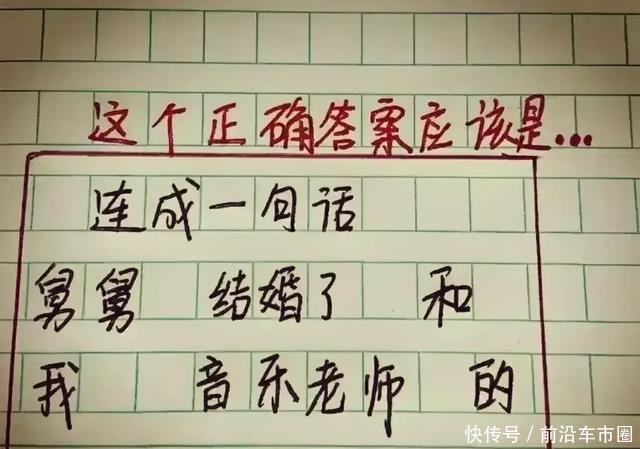 这个正确答案应该是...
连成一句话
舅舅 结婚了 和
我 音乐老师 的
快传号／前沿车市圈